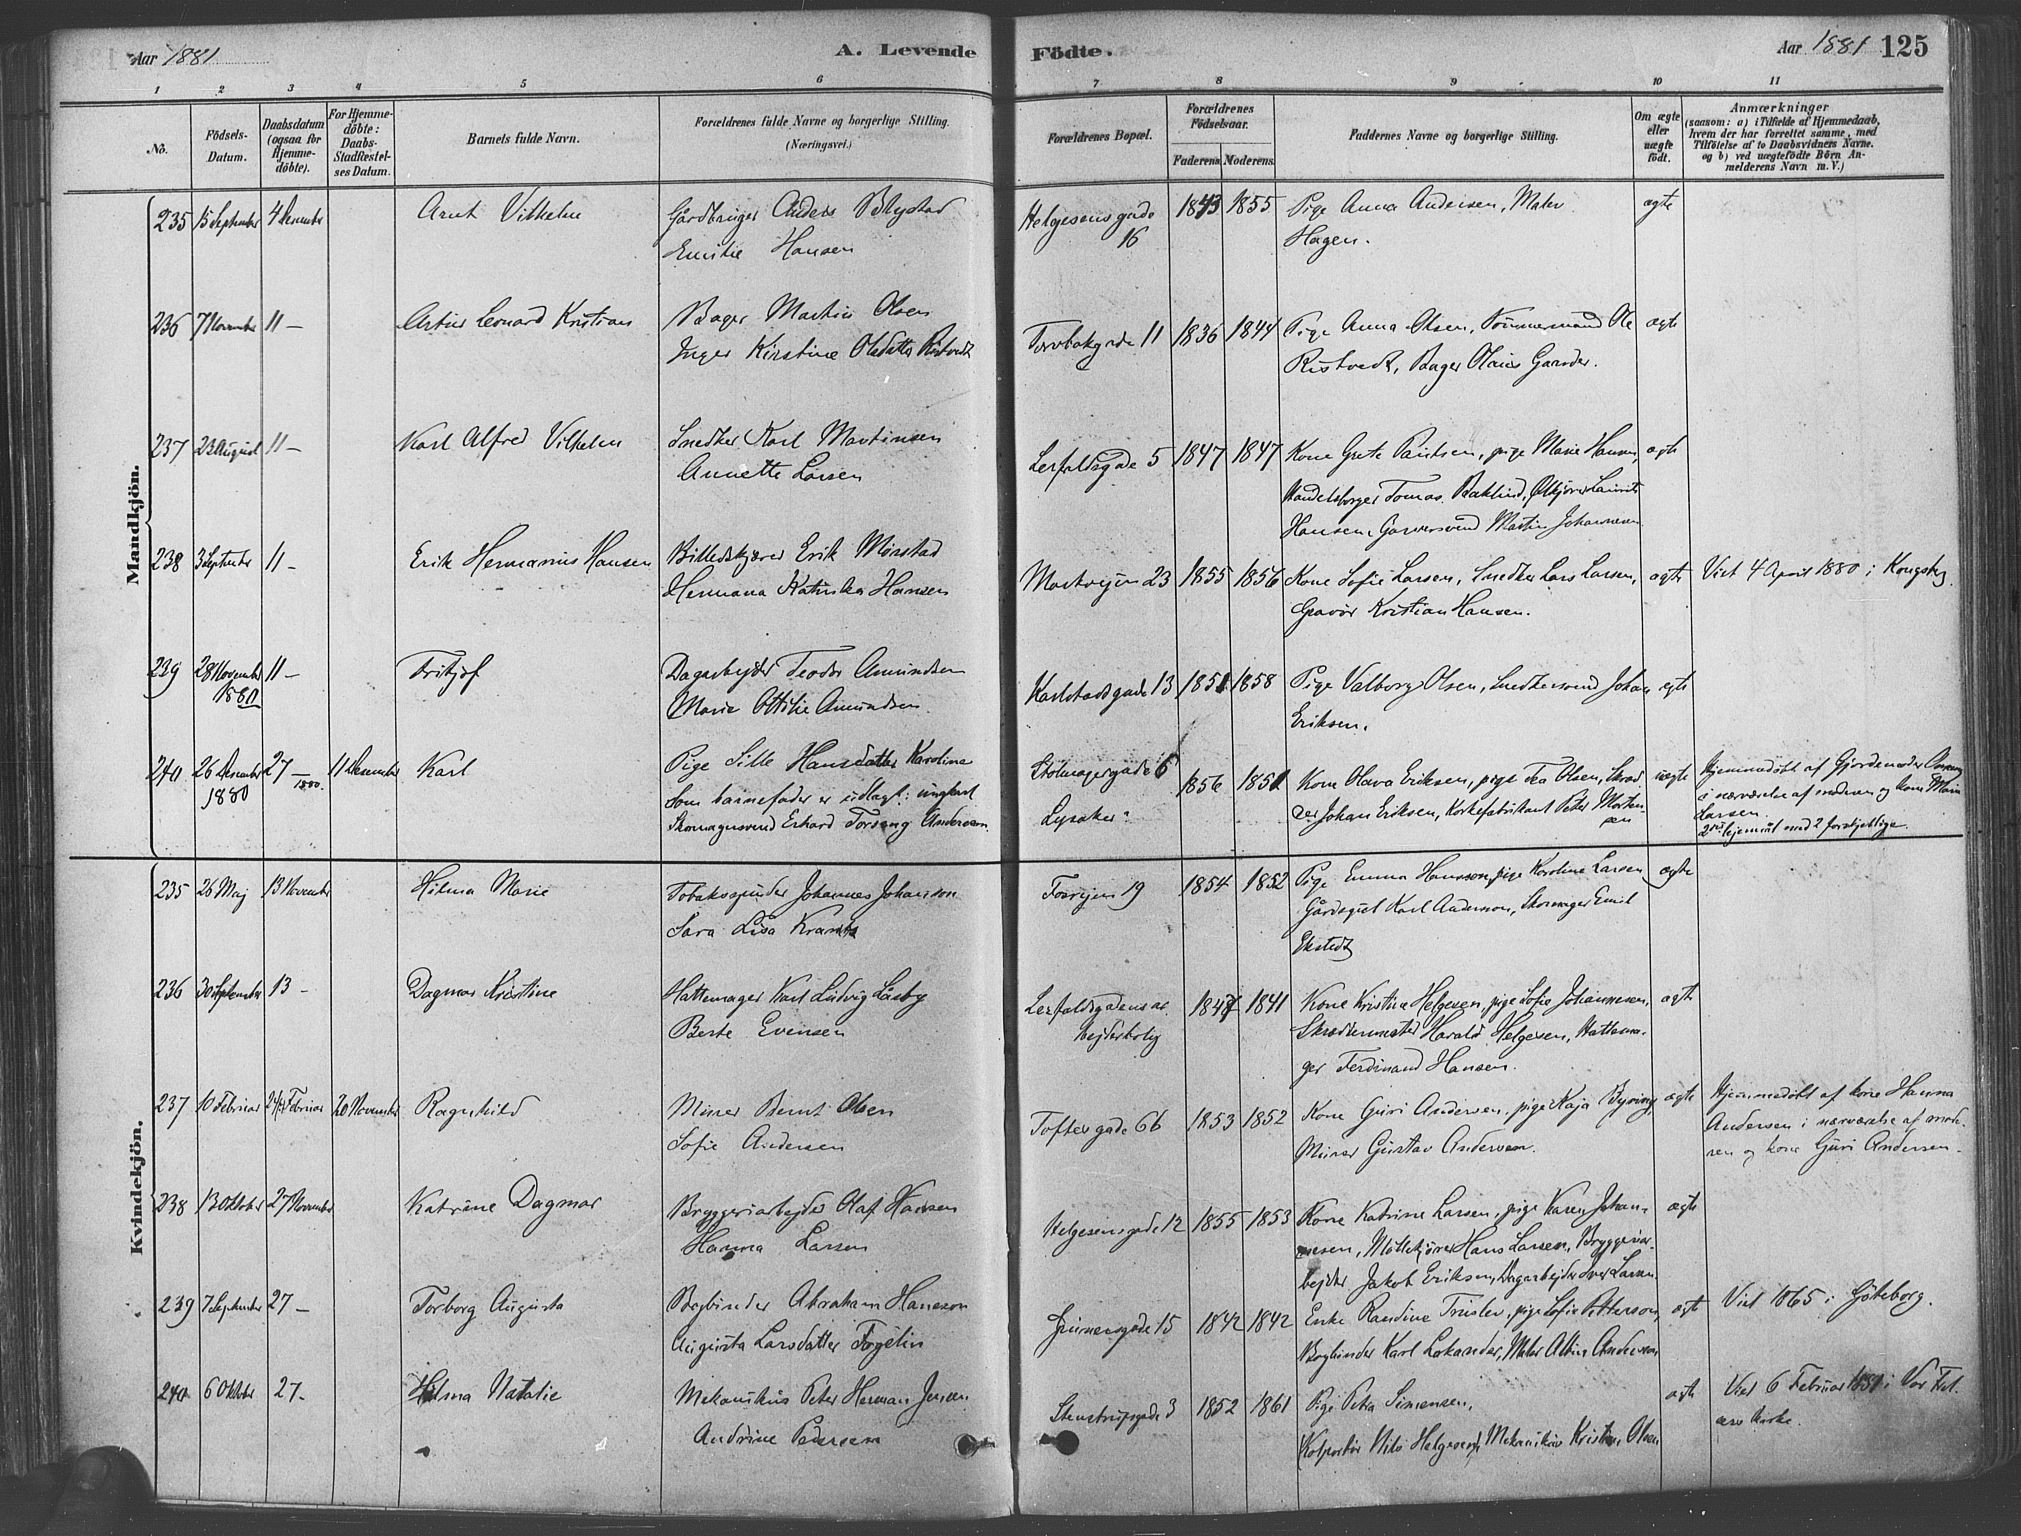 Aar 1881
A. Levende
Födte.
Aar 1881
125
1 2 3 4 5 6 7 8 9 10 11
No.
Födsels-Datum.
Daabsdatum (ogsaa for Hjemme-döbte).
For Hjemme-döbte: Daabs-Stadfæstel-ses Datum.
Barnets fulde Navn.
Forældrenes fulde Navne og borgerlige Stilling. (Næringsvei.)
Forældrenes Bopæl.
Forældrenes Födselsaar.
Faderens. Moderens.
Faddernes Navne og borgerlige Stilling.
Om ægte eller uægte födt.
Anmærkninger
(saasom: a) i Tilfælde af Hjemmedaab,
hvem der har forrettet samme, med
Tilföielse af to Daabsvidners Navne.
og b) ved uægtefödte Börn An-
melderens Navn m. V.)
Mandkjön.
235 15 September 4 Desember Arnt Vilhelm Gårdbruger Anders Blystad Helgesens gade 1843 1855 Pige Anna Andersen, Maler ægte
Emilie Hansen 16 Hagen.
236 7 November 11 – Artur Leonard Kristian Bager Martin Olsen Torvbakgade 11 1836 1844 Pige Anna Olsen, Tömmermand Ole ægte
Inger Kirstine Olsdatter Ristvedt Ristvedt, Bager Olaus Gander.
237 23 August 11 – Karl Alfred Vilhelm Snedker Karl Martinsen Lerfaldsgade 5 1847 1847 Kone Grete Paulsen, pige Marie Hansen, ægte
Annette Larsen Handelsborger Tomas Baklund, Ölkjörer Laurits
Hansen, Garversvend Martin Johannesen
238 3 September 11 – Erik Hermanius Hansen Billedskjærer Erik Mörstad Markvejen 23 1855 1856 Kone Sofie Larsen, Snedker Lars Larsen, ægte Viet 4 April 1880 i Kongsberg.
Hermana Katinka Hansen Gravör Kristian Hansen.
239 28 November 11 – Fritjof Dagarbejder Teodor Amundsen Karlstadsgade 13 1851 1858 Pige Valborg Olsen, Snedkersvend Johan ægte
1880 Marie Ottilie Amundsen. Eriksen.
240 26 Desember 27 – 11 Desember Karl Pige Sille Hansdatter Karoline 6 1856 1851 Kone Olava Eriksen, pige Olsen, Skræd uægte Hjemmedöbt af Gjordemoder
1880 1880. Som barnefader er udlagt: ungkarl Lysaker der Johan Eriksen, Korkefabrikant Peter Morten sen i nærværelse af moderen og kone Maria
Skomagersvend Erhard Andersen. Larsen.
2 med 2 forskjellige.
Kvindekjön.
235 26 Maj 13 November Hilma Marie Tobaksspinder Johannes Johanson Torvejen 19 1854 1852 Pige Emma Hansson, pige Karoline Larsen ægte
Sara Lisa Krants Gårdsgut Karl Anderson, Skomager Emil
Ekstedt
236 30 September 13 – Dagmar Kristine Hattemager Karl Ludvig Låsby Lerfaldsgadens ar 1847 1841 Kone Kristine Helgesen, pige Sofie Johannesen, ægte
Berte Evensen bejderbolig Skræddermester Harald Helgesen, Hattema-
ger Ferdinand Hansen.
237 10 Februar Februar 20 November Ragnhild Murer Bernt Olsen Toftesgade 66 1853 1852 Kone Guri Andersen, pige Kaja Byring, ægte Hjemmedöbt af kone Hanna
Sofie Andersen Murer Gustav Andersen. Andersen i nærværelse af mode-
ren og kone Guri Andersen.
238 13 Oktober 27 November Katrine Dagmar Bryggeriarbejder Olaf Hansen Helgesensgade 12 1855 1853 Kone Katrine Larsen, pige Karen Johan- ægte
Hanna Larsen nesen, Möllekjörer Hans Larsen, Bryggeriar-
bejder Jakob Eriksen, Dagarbejder Iver Larsen.
239 7 September 27 – Torborg Augusta Bogbinder Abraham Hanson Grünersgade 15 1842 1842 Enke Randine Truslev, pige Sofie Petterson, ægte Viet 1865 i Göteborg.
Augusta Larsdatter Fogelin Bogbinder Karl Lokander, Maler Albin Anderson
240 6 Oktober 27 – Hilma Natalie Mekanikus Peter Herman Jensen Stenstrupsgade 3 1852 1861 Pige Petra Simensen, ægte Viet 6 Februar 1881 i Vor Frel
Andrine Pedersen Kolportör Nils Helgesen, Mekanikus Kristian Olsen sers Kirke.